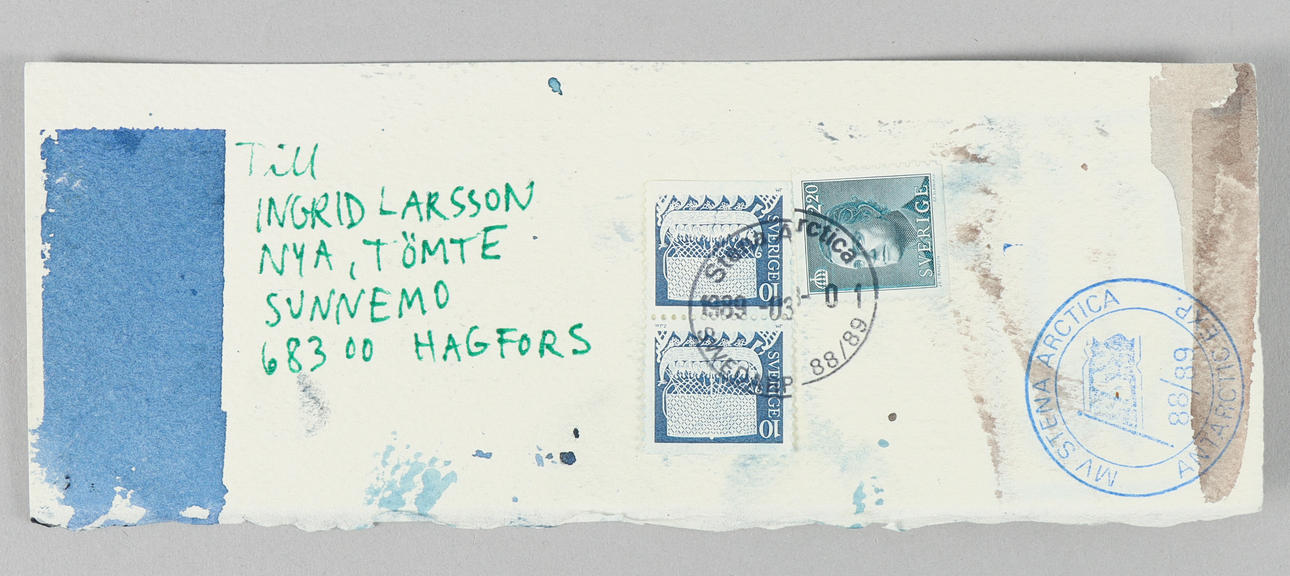 Till
INGRID LARSSON
NYA, TÖMTE
SUNNEMO
683 00 HAGFORS
SVERIGE 10
SVERIGE 10
2.20 SVERIGE
Stena Arctica
1989-03-01
SWEDARP 88/89
MV STENA ARCTICA
ANTARCTIC EXP.
88/89